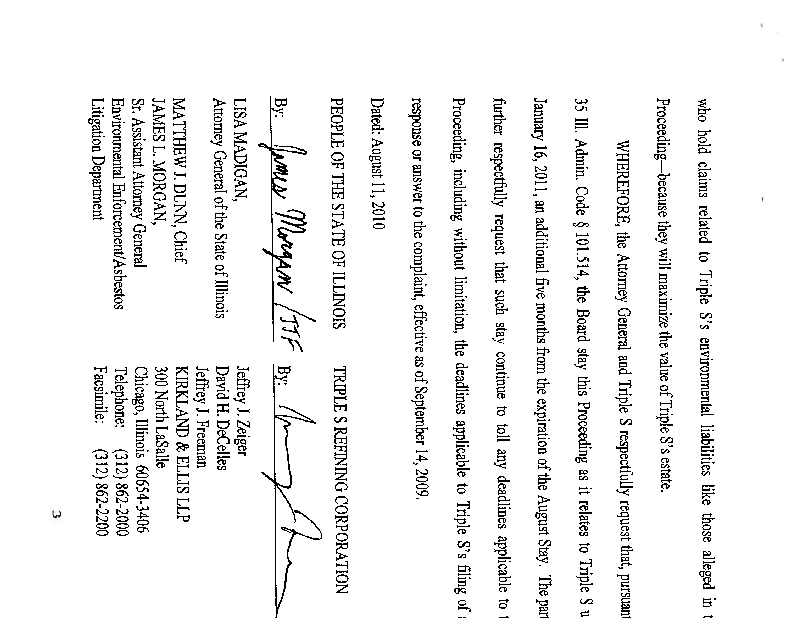 who hold claims related to Triple S's environmental liabilities like those alleged in t
Proceeding—because they will maximize the value of Triple S's estate.
WHEREFORE, the Attorney General and Triple S respectfully request that, pursuant
35 Ill. Admin. Code § 101.514, the Board stay this Proceeding as it relates to Triple S u
January 16, 2011, an additional five months from the expiration of the August Stay. The par
further respectfully request that such stay continue to toll any deadlines applicable to t
Proceeding, including without limitation, the deadlines applicable to Triple S's filing of
response or answer to the complaint, effective as of September 14, 2009.
Dated: August 11, 2010
PEOPLE OF THE STATE OF ILLINOIS
By: James Morgan / JTF
LISA MADIGAN,
Attorney General of the State of Illinois
MATTHEW J. DUNN, Chief
JAMES L. MORGAN,
Sr. Assistant Attorney General
Environmental Enforcement/Asbestos
Litigation Department
TRIPLE S REFINING CORPORATION
By:
Jeffrey J. Zeiger
David H. DeCelles
Jeffrey J. Freeman
KIRKLAND & ELLIS LLP
300 North LaSalle
Chicago, Illinois 60654-3406
Telephone: (312) 862-2000
Facsimile: (312) 862-2200
3